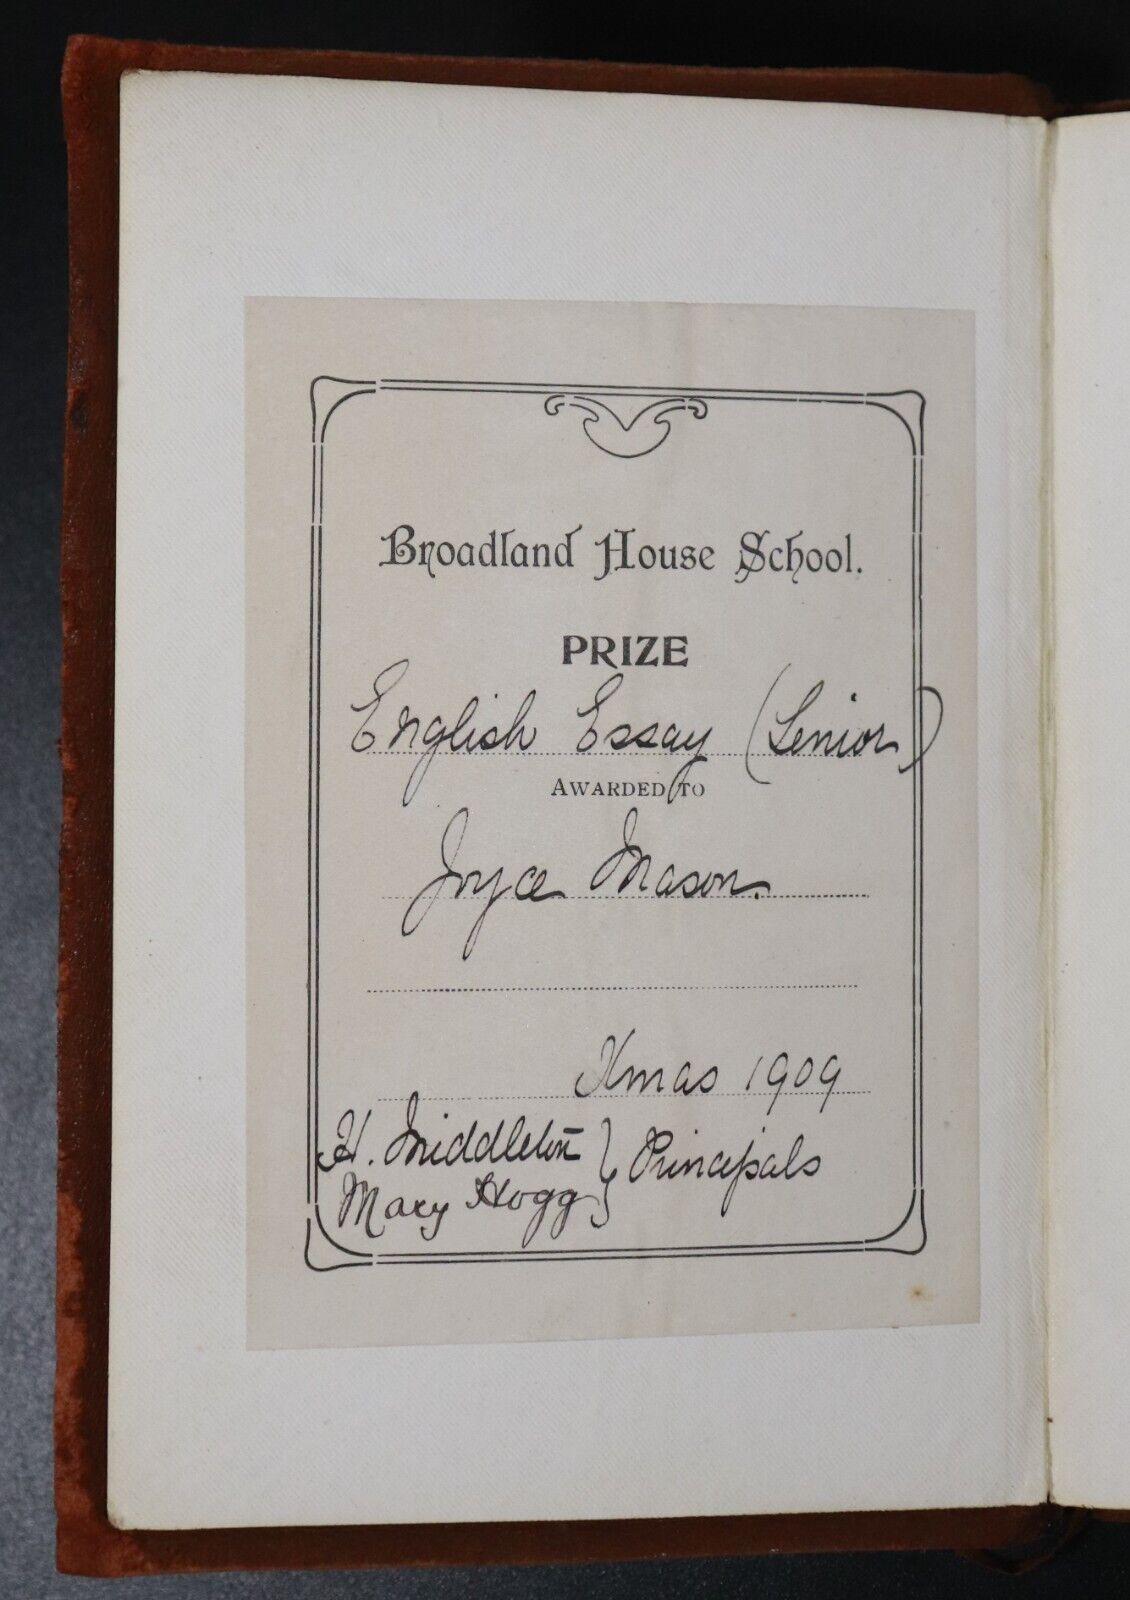 Broadland House School.
PRIZE
English Essay (Senior)
AWARDED TO
Joyce Mason.
Xmas 1909
H. Middleton } Principals
Mary Hogg